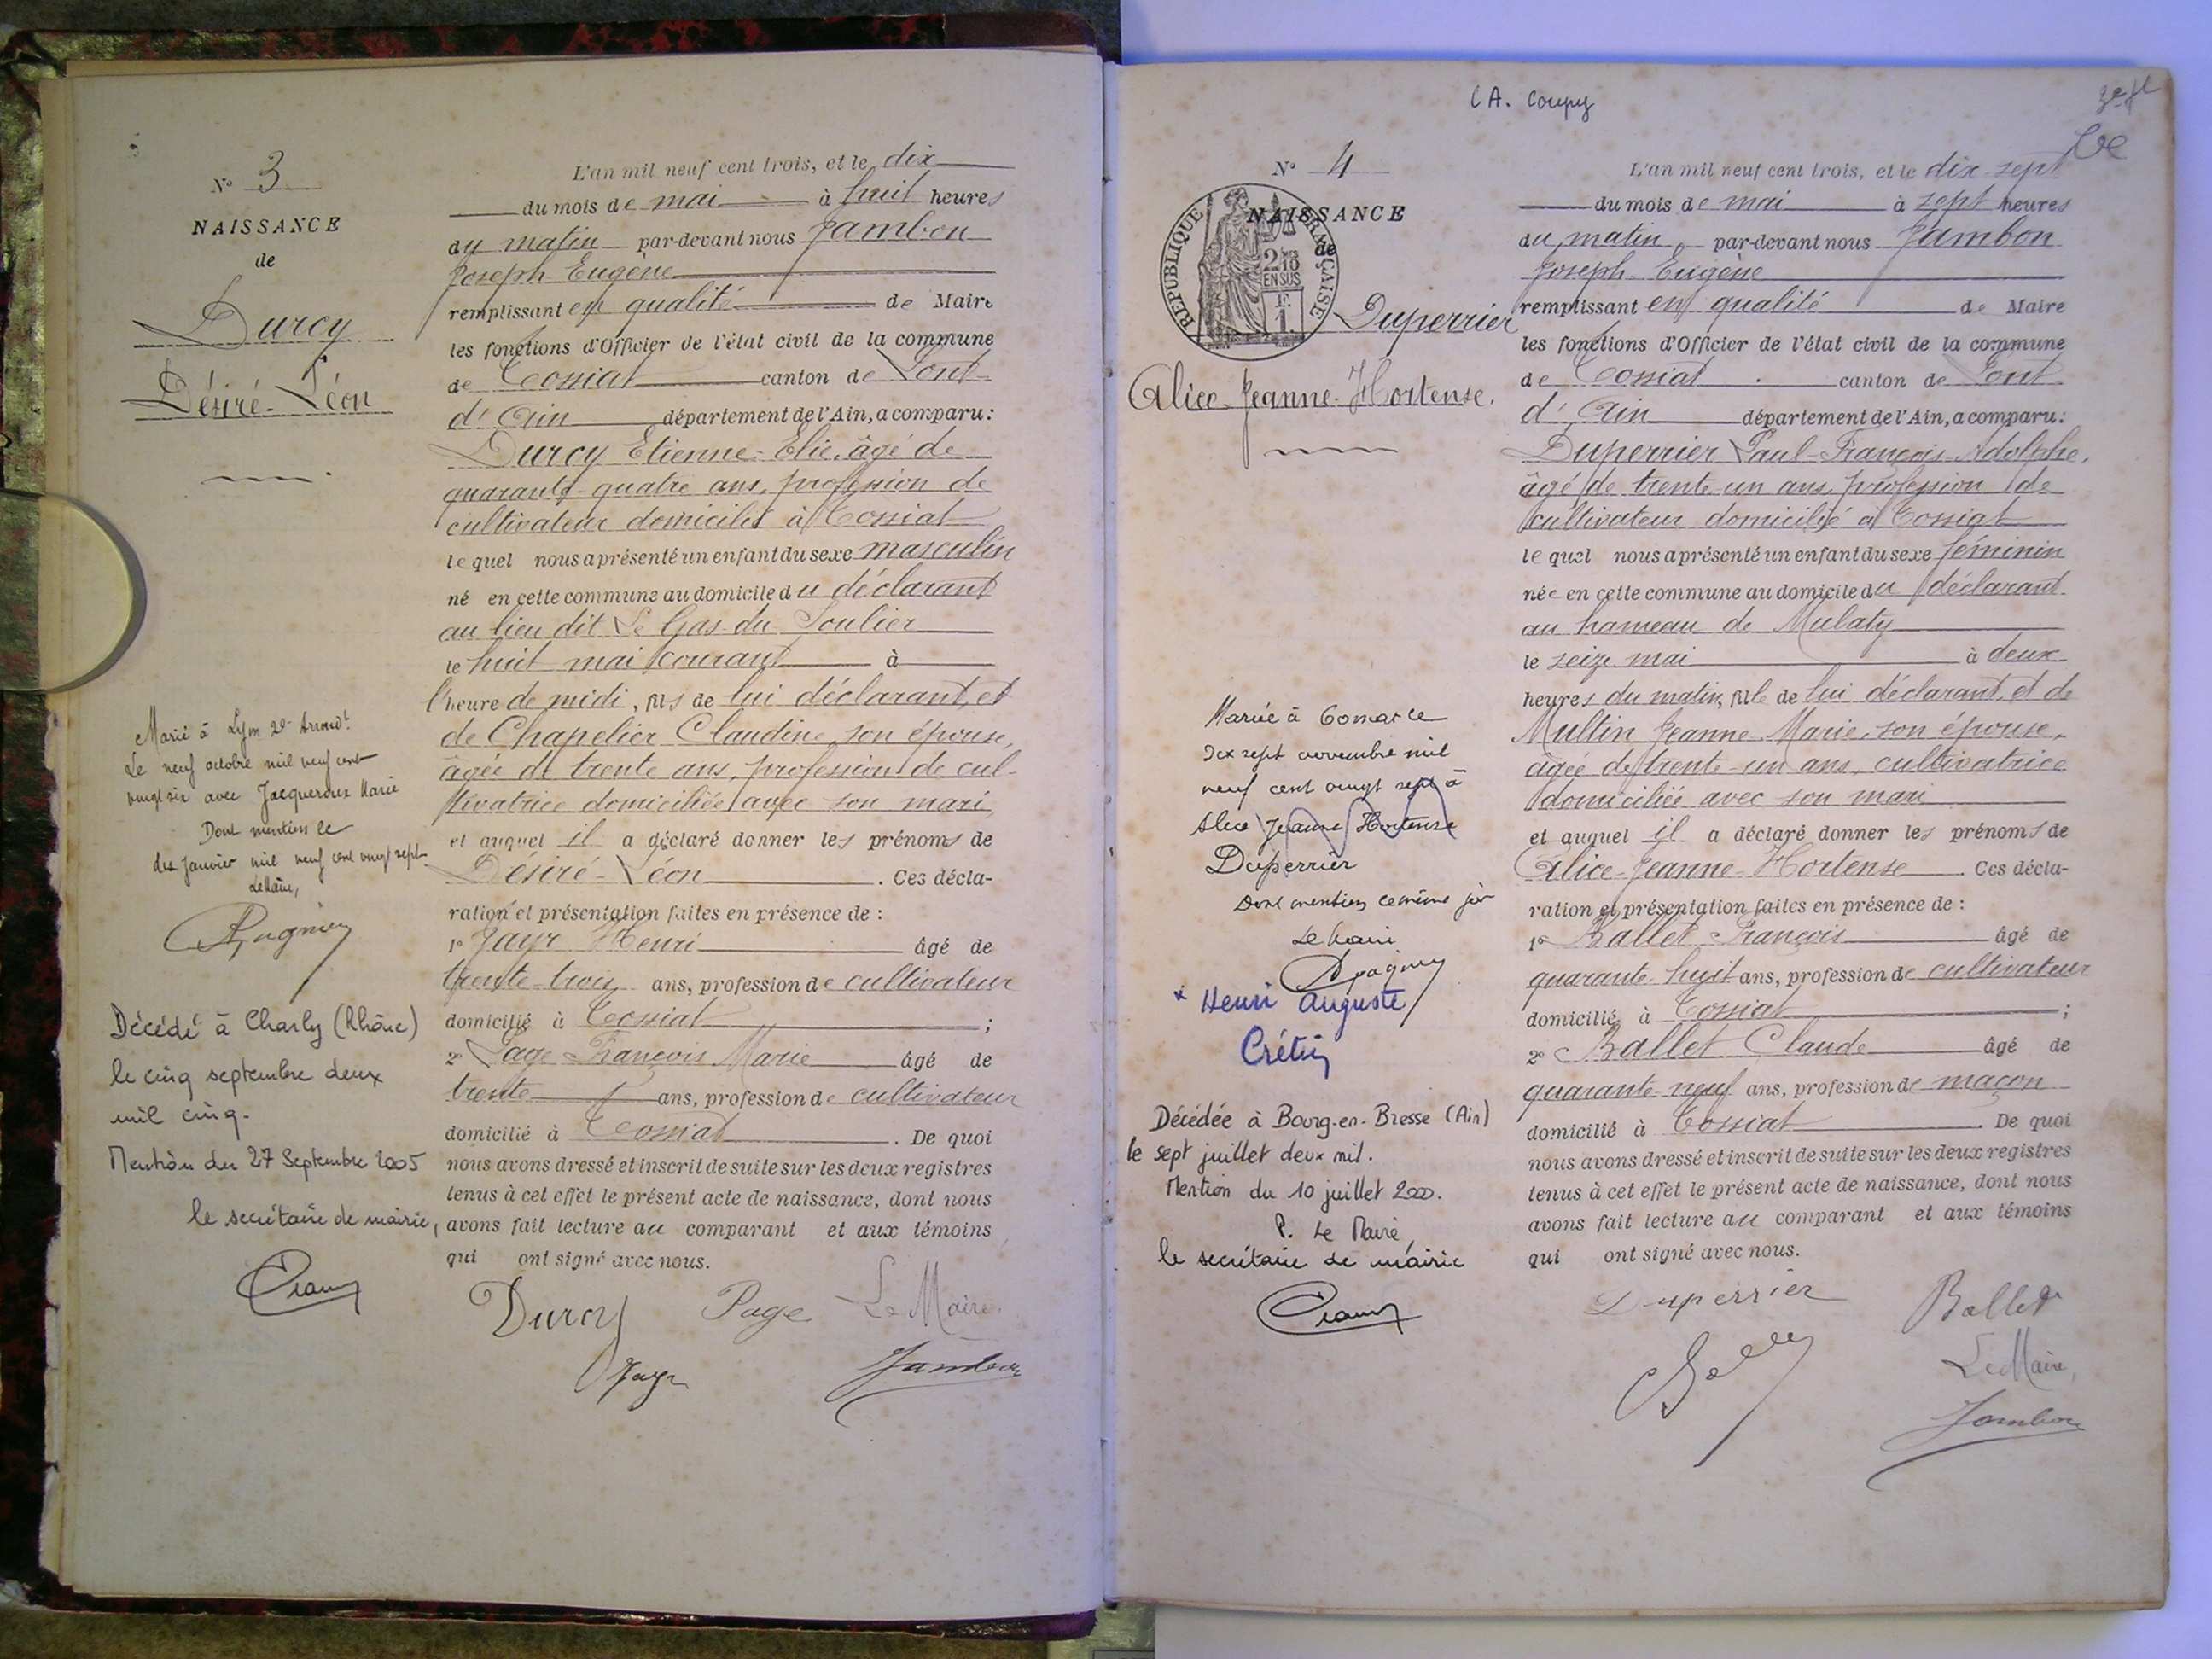 N° 3
NAISSANCE
de
Durcy
Désiré-Léon
Marié à Lyon 2e Arrondt
Le neuf octobre mil neuf cent
vingt six avec Jacqueroux Marie
Dont mention le
dix janvier mil neuf cent vingt sept
Le Maire,
Décédé à Charly (Rhône)
le cinq septembre deux
mil cinq.
Mention du 27 Septembre 2005
le secrétaire de mairie,
L'an mil neuf cent trois, et le dix
du mois de mai à huit heures
du matin par-devant nous Jambon
Joseph Eugène
remplissant en qualité de Maire
les fonctions d'Officier de l'état civil de la commune
de Tossiat canton de Pont
d'Ain département de l'Ain, a comparu:
Durcy Etienne-Elie, âgé de
quarante-quatre ans, profession de
cultivateur domicilié à Tossiat
lequel nous a présenté un enfant du sexe masculin
né en cette commune au domicile du déclarant
au lieu dit Le Gas du Soulier
le huit mai courant à
l'heure de midi, fils de lui déclarant, et
de Chapelier Claudine, son épouse,
âgée de trente ans, profession de cul-
tivatrice domiciliée avec son mari
et auquel il a déclaré donner les prénoms de
Désiré-Léon. Ces décla-
ration et présentation faites en présence de :
1° Jayr Henri âgé de
trente-trois ans, profession de cultivateur
domicilié à Tossiat ;
2° Page François Marie âgé de
trente ans, profession de cultivateur
domicilié à Tossiat. De quoi
nous avons dressé et inscrit de suite sur les deux registres
tenus à cet effet le présent acte de naissance, dont nous
avons fait lecture au comparant et aux témoins
qui ont signé avec nous.
Durcy Page Le Maire
Jayr Jambon
CA. Coupy
N° 4
NAISSANCE
de
RÉPUBLIQUE FRANÇAISE
2/10
EN SUS
F.
1.
Duperrier
Alice-Jeanne-Hortense.
Mariée à Tossiat le
dix sept novembre mil
neuf cent vingt sept à
Alice Jeanne Hortense
Duperrier
Dont mention ce même jour
Le Maire
x Henri Auguste
Crétin
Décédée à Bourg-en-Bresse (Ain)
le sept juillet deux mil.
Mention du 10 juillet 2000.
P. Le Maire,
le secrétaire de mairie
L'an mil neuf cent trois, et le dix-sept
du mois de mai à sept heures
du matin, par-devant nous Jambon
Joseph-Eugène
remplissant en qualité de Maire
les fonctions d'Officier de l'état civil de la commune
de Tossiat canton de Pont
d'Ain département de l'Ain, a comparu:
Duperrier Paul-François-Adolphe,
âgé de trente-un ans, profession de
cultivateur domicilié à Tossiat
lequel nous a présenté un enfant du sexe féminin
née en cette commune au domicile du déclarant
au hameau de Mulaty
le seize mai à deux
heures du matin, fille de lui déclarant, et de
Multin Jeanne-Marie, son épouse,
âgée de trente-un ans, cultivatrice
domiciliée avec son mari
et auquel il a déclaré donner les prénoms de
Alice-Jeanne-Hortense. Ces décla-
ration et présentation faites en présence de :
1° Ballet François âgé de
quarante-huit ans, profession de cultivateur
domicilié à Tossiat ;
2° Ballet Claude âgé de
quarante-neuf ans, profession de maçon
domicilié à Tossiat. De quoi
nous avons dressé et inscrit de suite sur les deux registres
tenus à cet effet le présent acte de naissance, dont nous
avons fait lecture au comparant et aux témoins
qui ont signé avec nous.
Duperrier Ballet
Le Maire,
Jambon